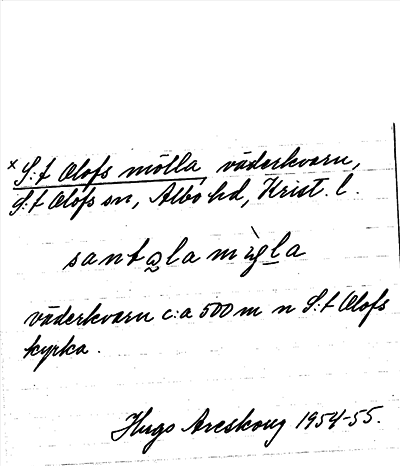 x S:t Olofs mölla, väderkvarn,
S:t Olofs sn, Albo hd, Krist. l.
väderkvarn c:a 500 m n S:t Olofs
kyrka.
Hugo Areskoug 1954-55.